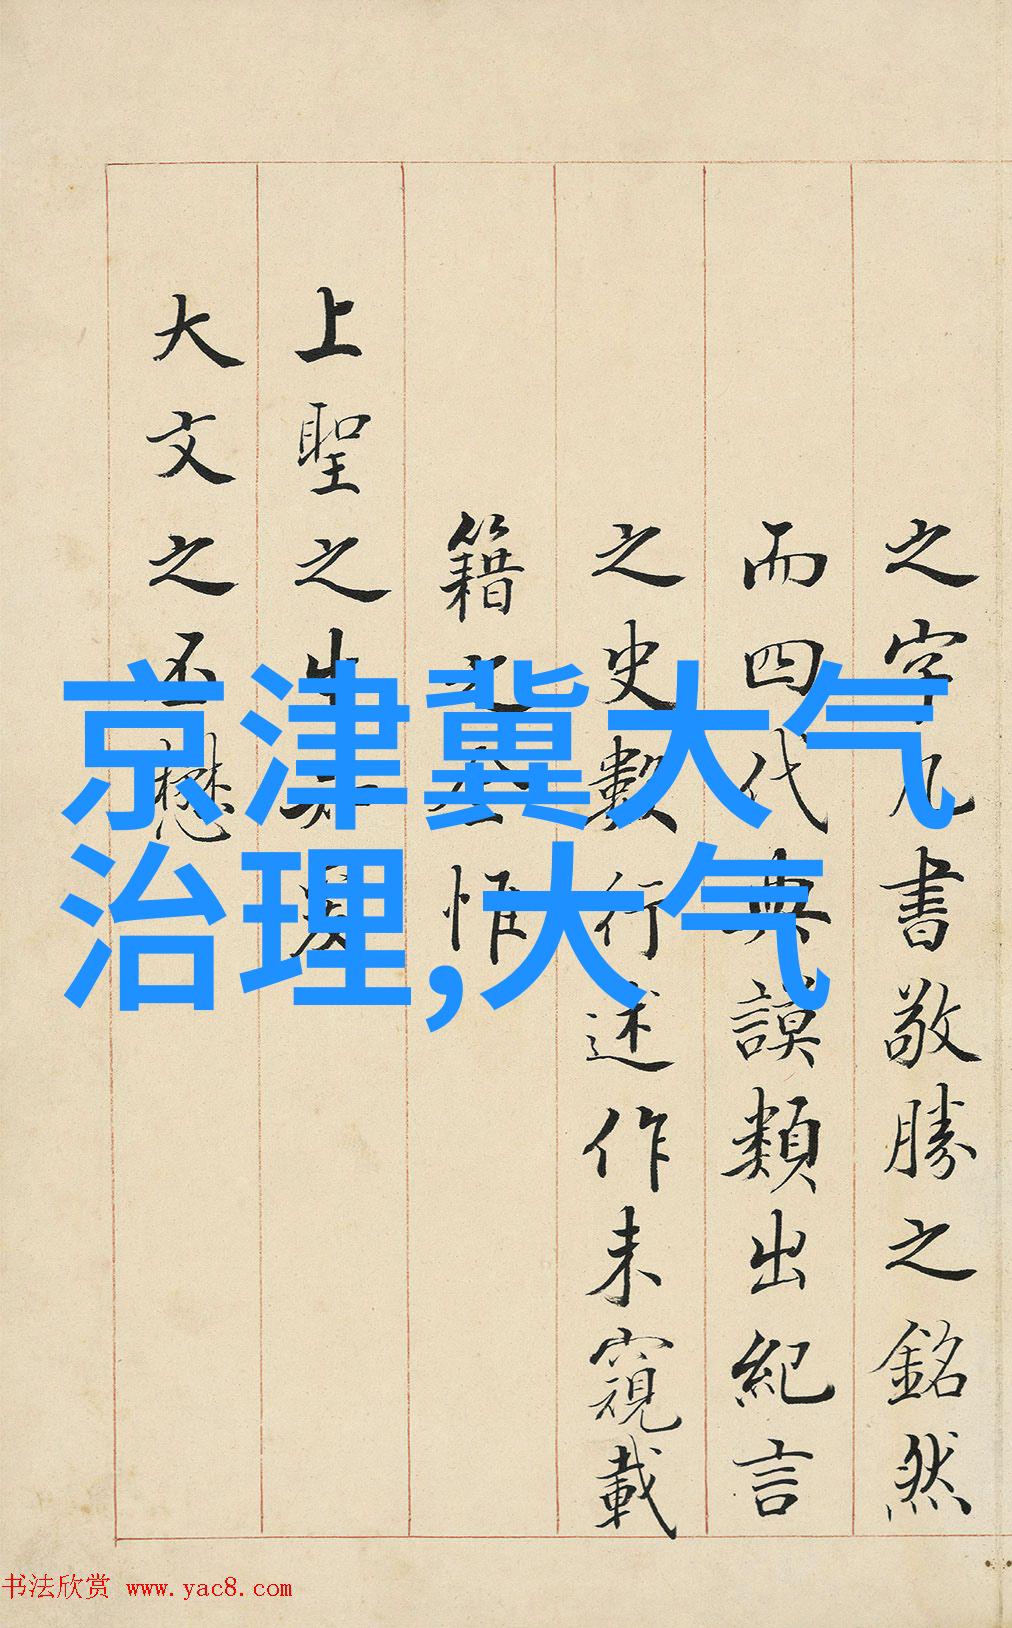 之字凡書敬勝之銘然
而四代典謨類出紀言
之史數行述作未窺載
籍之全惟
上聖之生知爰
大文之丕懋
京津冀大气
治理,大气
书法欣赏 www.yac8.com